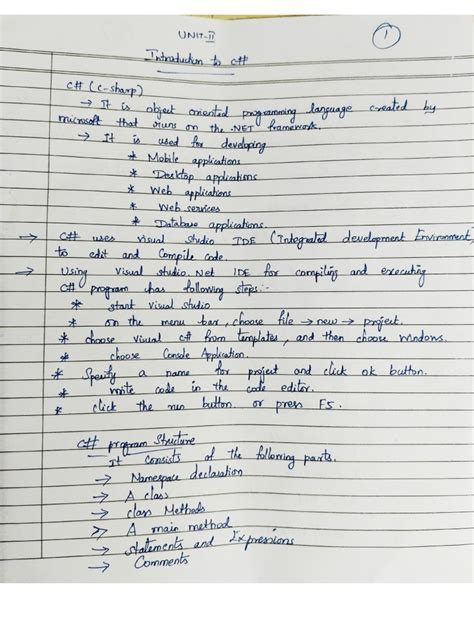 UNIT-II
1
Introduction to C#
C# (C-sharp)
→ It is object oriented programming language created by
microsoft that runs on the .NET framework.
→ It is used for developing
* Mobile applications
* Desktop applications
* Web applications
* Web services
* Database applications.
→ C# uses visual studio IDE (Integrated development Environment)
to edit and compile code.
→ Using visual studio.Net IDE for compiling and executing
C# program has following steps:-
* start visual studio
* on the menu bar, choose file → new → project.
* choose visual c# from templates, and then choose windows.
* choose Console Application.
* Specify a name for project and click ok button.
* write code in the code editor.
* click the run button. or press F5.
C# program Structure
It consists of the following parts.
→ Namespace declaration
→ A class
→ class Methods
→ A main method
→ statements and Expressions
→ Comments